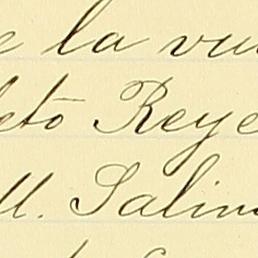 e la vu
leto Reye
M. Salin